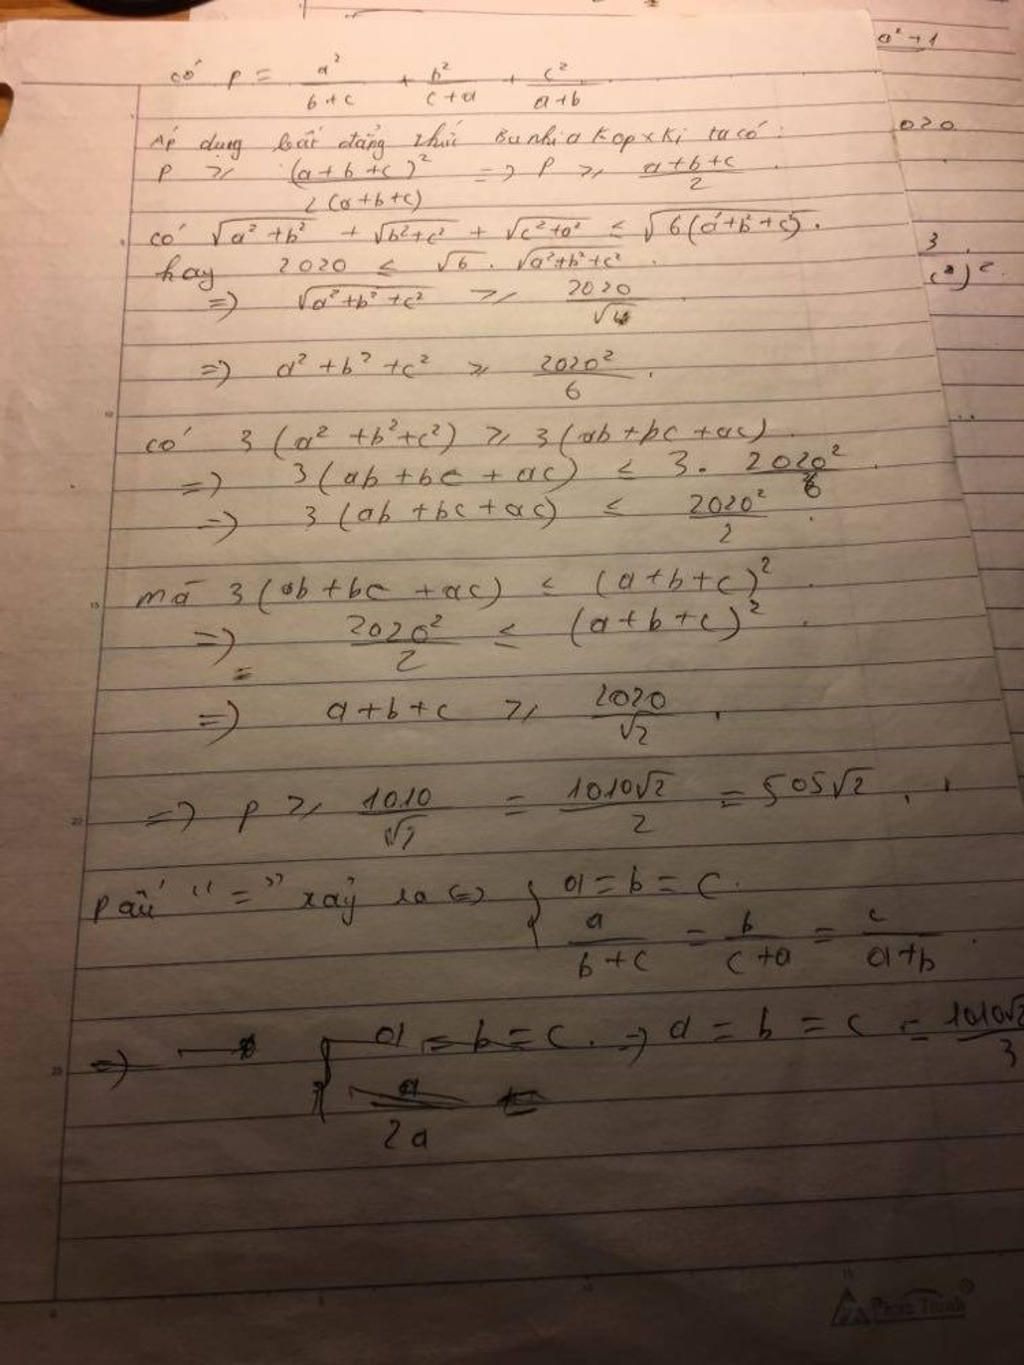 a² + 1
có P = a²/(b+c) + b²/(c+a) + c²/(a+b)
020
Áp dụng bất đẳng thức Bu nhi a Kop x Ki ta có :
P ≥ (a+b+c)²/2(a+b+c) => P ≥ (a+b+c)/2
có √(a²+b²) + √(b²+c²) + √(c²+a²) ≤ √(6(a²+b²+c²)).
3
hay 2020 ≤ √6 . √(a²+b²+c²).
=> √(a²+b²+c²) ≥ 2020/√6
=> a² + b² + c² ≥ 2020²/6.
có 3(a² + b² + c²) ≥ 3(ab + bc + ac)
=> 3(ab + bc + ac) ≤ 3. 2020²/6.
=> 3(ab + bc + ac) ≤ 2020²/2.
mà 3(ab + bc + ac) ≤ (a+b+c)².
=> 2020²/2 ≤ (a+b+c)².
=> a+b+c ≥ 2020/√2.
=> P ≥ 1010/√2 = 1010√2/2 = 505√2.
Dấu "=" xảy ra <=> { a = b = c.
a/(b+c) = b/(c+a) = c/(a+b).
=> { a = b = c. => a = b = c = 1010√2/3
a/2a